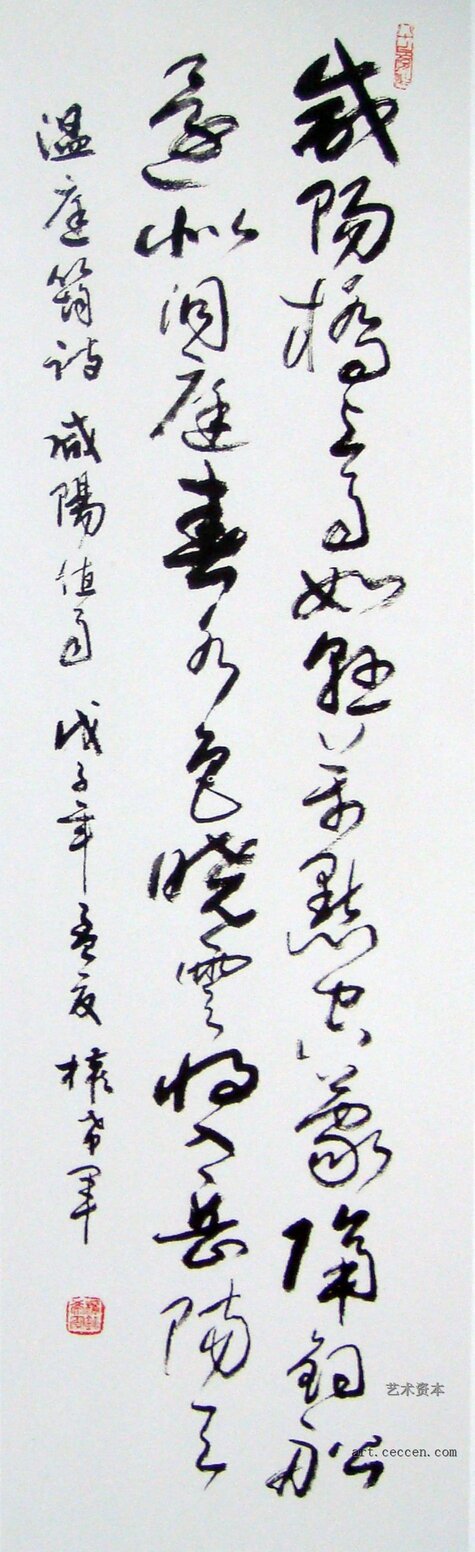 咸陽橋上雨如懸萬點空蒙隔釣船
還似洞庭春水色曉雲將入岳陽天
温庭筠詩咸陽值雨 戊子年孟夏 權希軍
艺术资本
art.ceccen.com